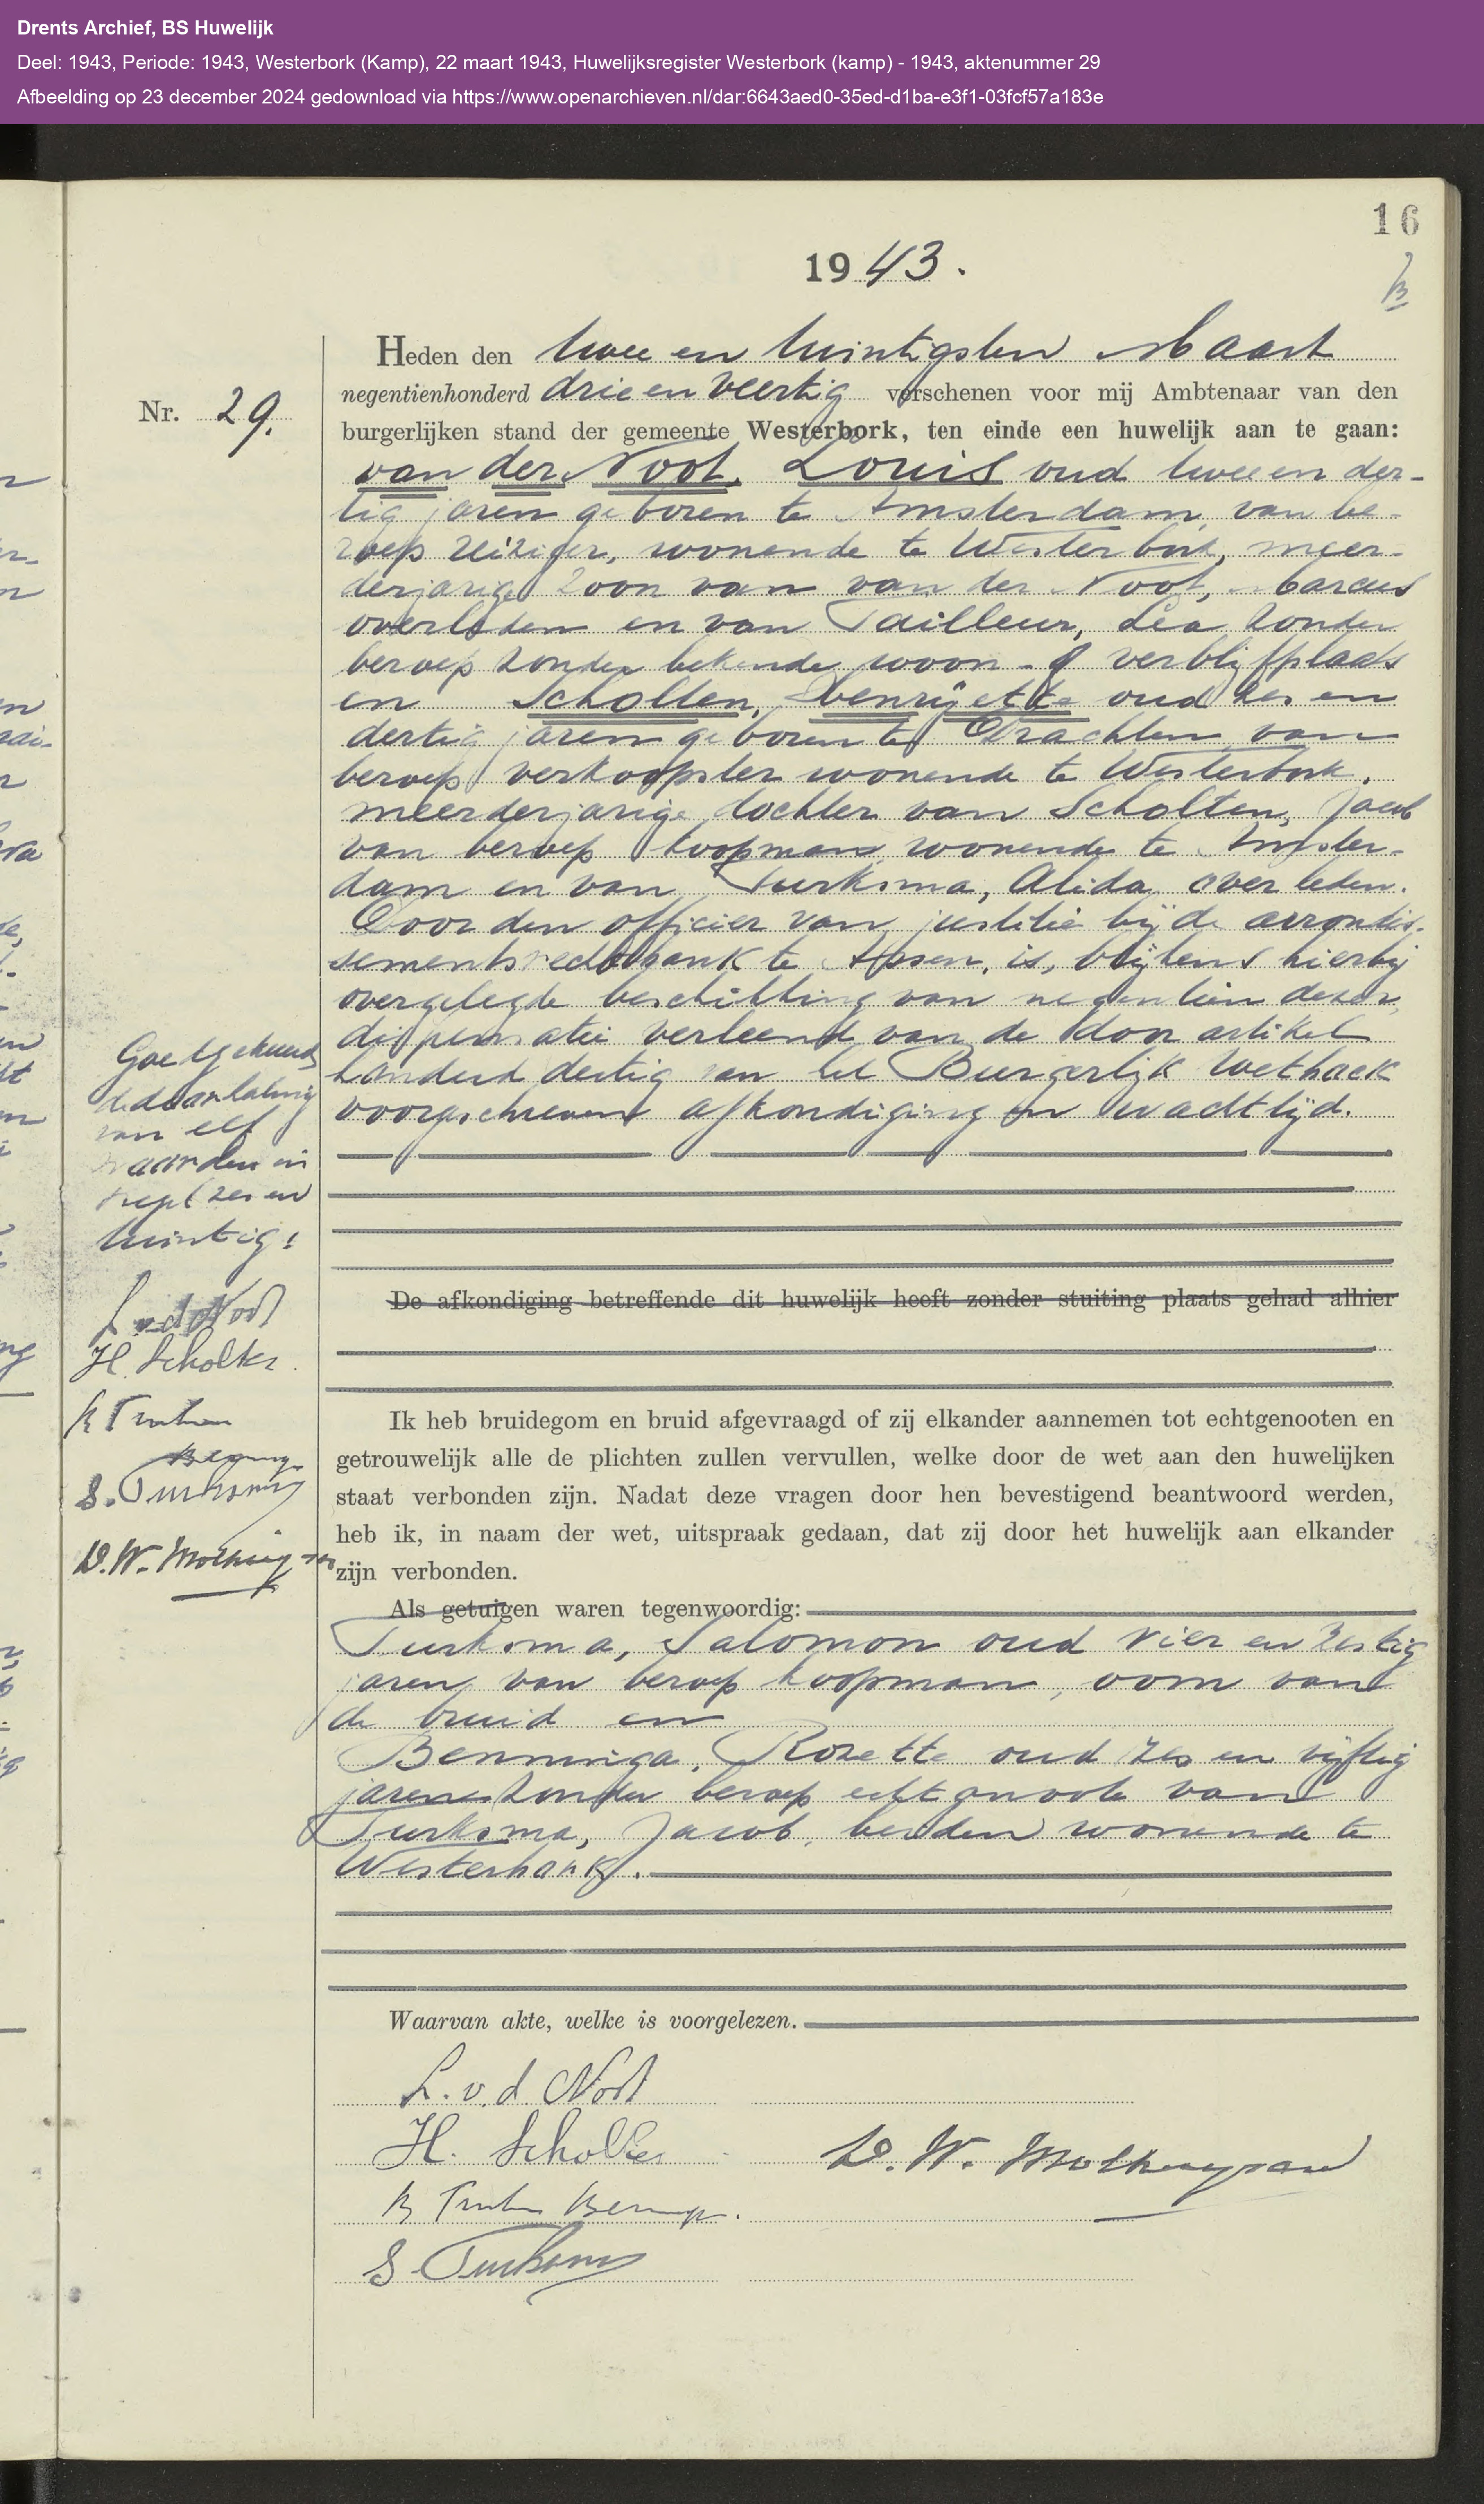 Drents Archief, BS Huwelijk
Deel: 1943, Periode: 1943, Westerbork (Kamp), 22 maart 1943, Huwelijksregister Westerbork (kamp) - 1943, aktenummer 29
Afbeelding op 23 december 2024 gedownload via https://www.openarchieven.nl/dar:6643aed0-35ed-d1ba-e3f1-03fcf57a183e
16
1943.
Nr. 29.
Heden den twee en twintigsten Maart
negentienhonderd drie en veertig verschenen voor mij Ambtenaar van den
burgerlijken stand der gemeente Westerbork, ten einde een huwelijk aan te gaan:
van der Noot, Louis oud twee en der-
tig jaren geboren te Amsterdam, van be-
roep reiziger, wonende te Westerbork, meer-
derjarige zoon van van der Noot, Marcus
overleden en van Tailleur, Lea zonder
beroep zonder bekende woon- of verblijfplaats
en Scholten, Henrijette oud zes en
dertig jaren geboren te Drachten van
beroep verkoopster wonende te Westerbork,
meerderjarige dochter van Scholten, Jacob
van beroep koopman, wonende te Amster-
dam en van Turksma, Alida overleden.
Door den officier van justitie bij de arrondis-
sementsrechtbank te Assen, is, blijkens hierbij
overgelegde beschikking van negentien dezer,
dispensatie verleend van de door artikel
honderd dertig van het Burgerlijk Wetboek
voorgeschreven afkondiging en wachttijd.
Goedgekeurd
de doorhaling
van elf
woorden in
regel zes en
twintig!
L. v d Noot
H. Scholten.
S. Turksma
D. W. Molhuijsen
De afkondiging betreffende dit huwelijk heeft zonder stuiting plaats gehad alhier
Ik heb bruidegom en bruid afgevraagd of zij elkander aannemen tot echtgenooten en
getrouwelijk alle de plichten zullen vervullen, welke door de wet aan den huwelijken
staat verbonden zijn. Nadat deze vragen door hen bevestigend beantwoord werden,
heb ik, in naam der wet, uitspraak gedaan, dat zij door het huwelijk aan elkander
zijn verbonden.
Als getuigen waren tegenwoordig:
Turksma, Salomon oud vier en zestig
jaren, van beroep koopman, oom van
de bruid en
Benninga, Rozette oud zes en vijftig
jaren zonder beroep echtgenoote van
Turksma, Jacob, beiden wonende te
Westerbork.
Waarvan akte, welke is voorgelezen.
L. v. d. Noot
H. Scholten
D. W. Molhuijsen
S Turksma